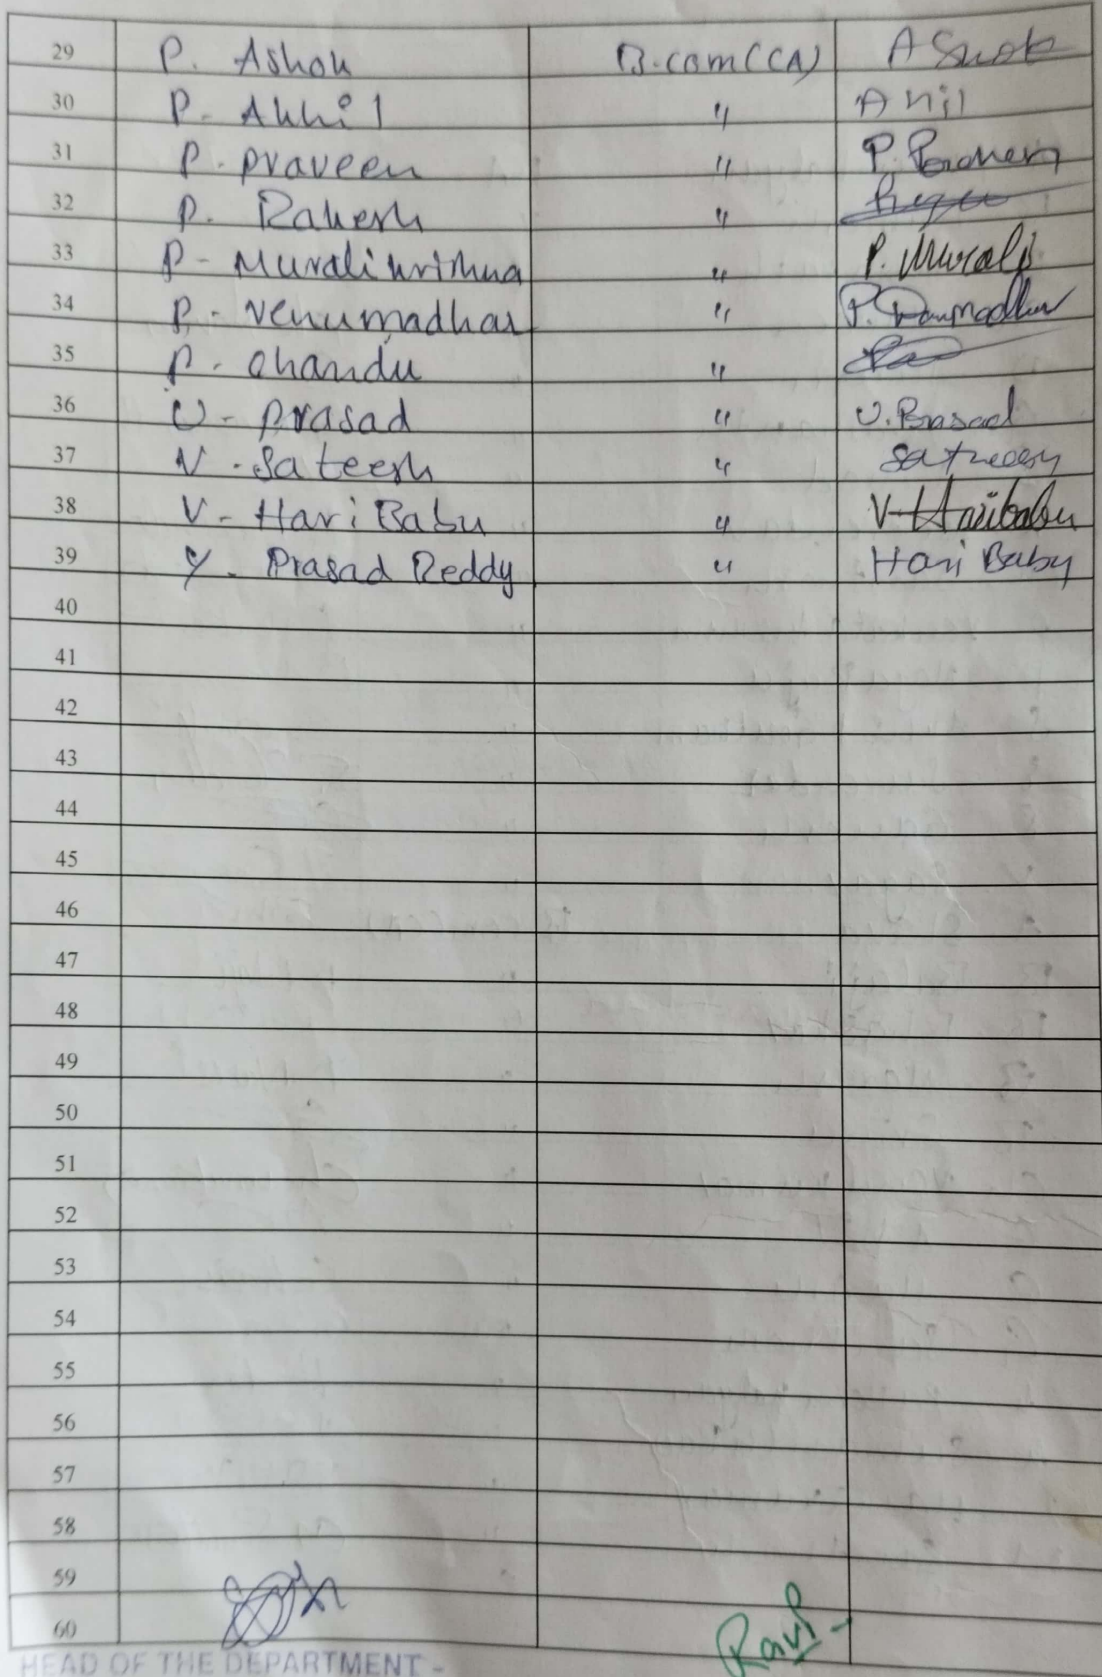 29 P. Ashok B.com(CA) Ashok
30 P. Akhil " Anil
31 P. Praveen " P.
32 P. Rakesh "
33 P. Muralikrishna " P. Murali
34 P. Venumadhar "
35 P. Chandu "
36 U. Prasad " U. Prasad
37 V. Sateesh " Sateesh
38 V. Hari Babu " V. Haribabu
39 Y. Prasad Reddy " Hari Baby
40
41
42
43
44
45
46
47
48
49
50
51
52
53
54
55
56
57
58
59
60
Ravi
HEAD OF THE DEPARTMENT -